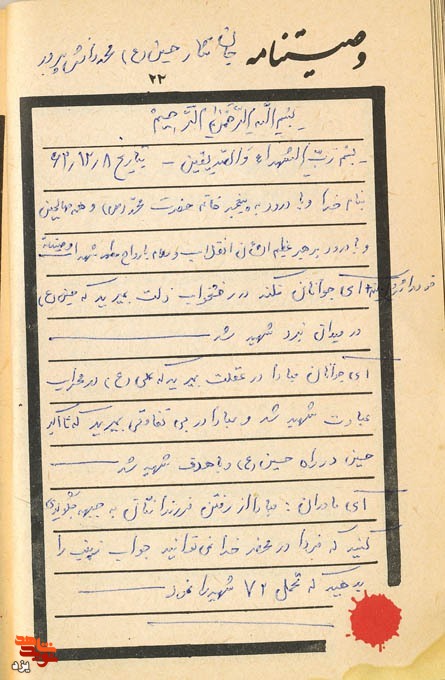 وصیتنامه جان نثار حسین (ع) محمد دانش پرور
۲۲
بسم الله الرحمن الرحیم
- بسم رب الشهداء والصدیقین - بتاریخ ۶۲/۱۲/۸
بنام خدا و با درود به پیغمبر خاتم حضرت محمد (ص) و همه صالحین
و با درود بر رهبر عظیم الشأن انقلاب و سلام بارواح مطهر شهدا وصیتنامه
خود را شروع میکنم ای جوانان نکند در رختخواب ذلت بمیرید که حسین (ع)
در میدان نبرد شهید شد
ای جوانان مبادا در غفلت بمیرید که علی (ع) در محراب
عبادت شهید شد و مبادا در بی تفاوتی بمیرید که علی اکبر
حسین در راه حسین (ع) و با هدف شهید شد
ای مادران: مبادا از رفتن فرزندانتان به جبهه جلوگیری
کنید که فردا در محضر خدا نمی توانید جواب زینب را
بدهید که تحمل ۷۲ شهید را نمود